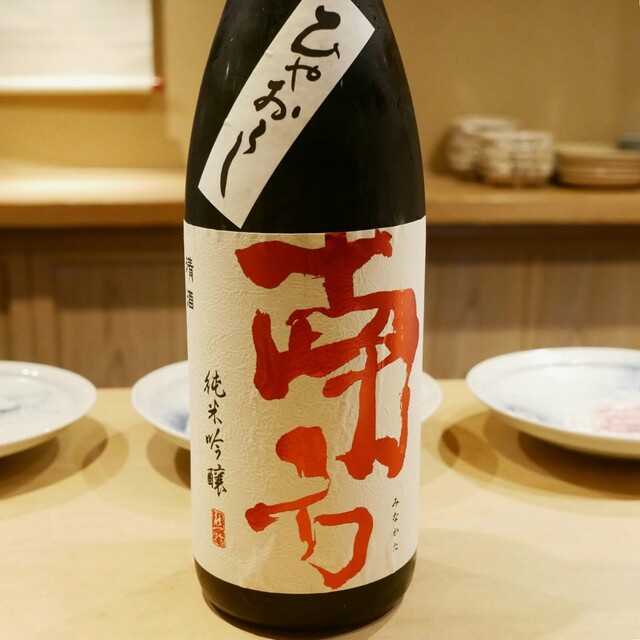 ひやおろし
南方
みなかた
清酒
純米吟醸